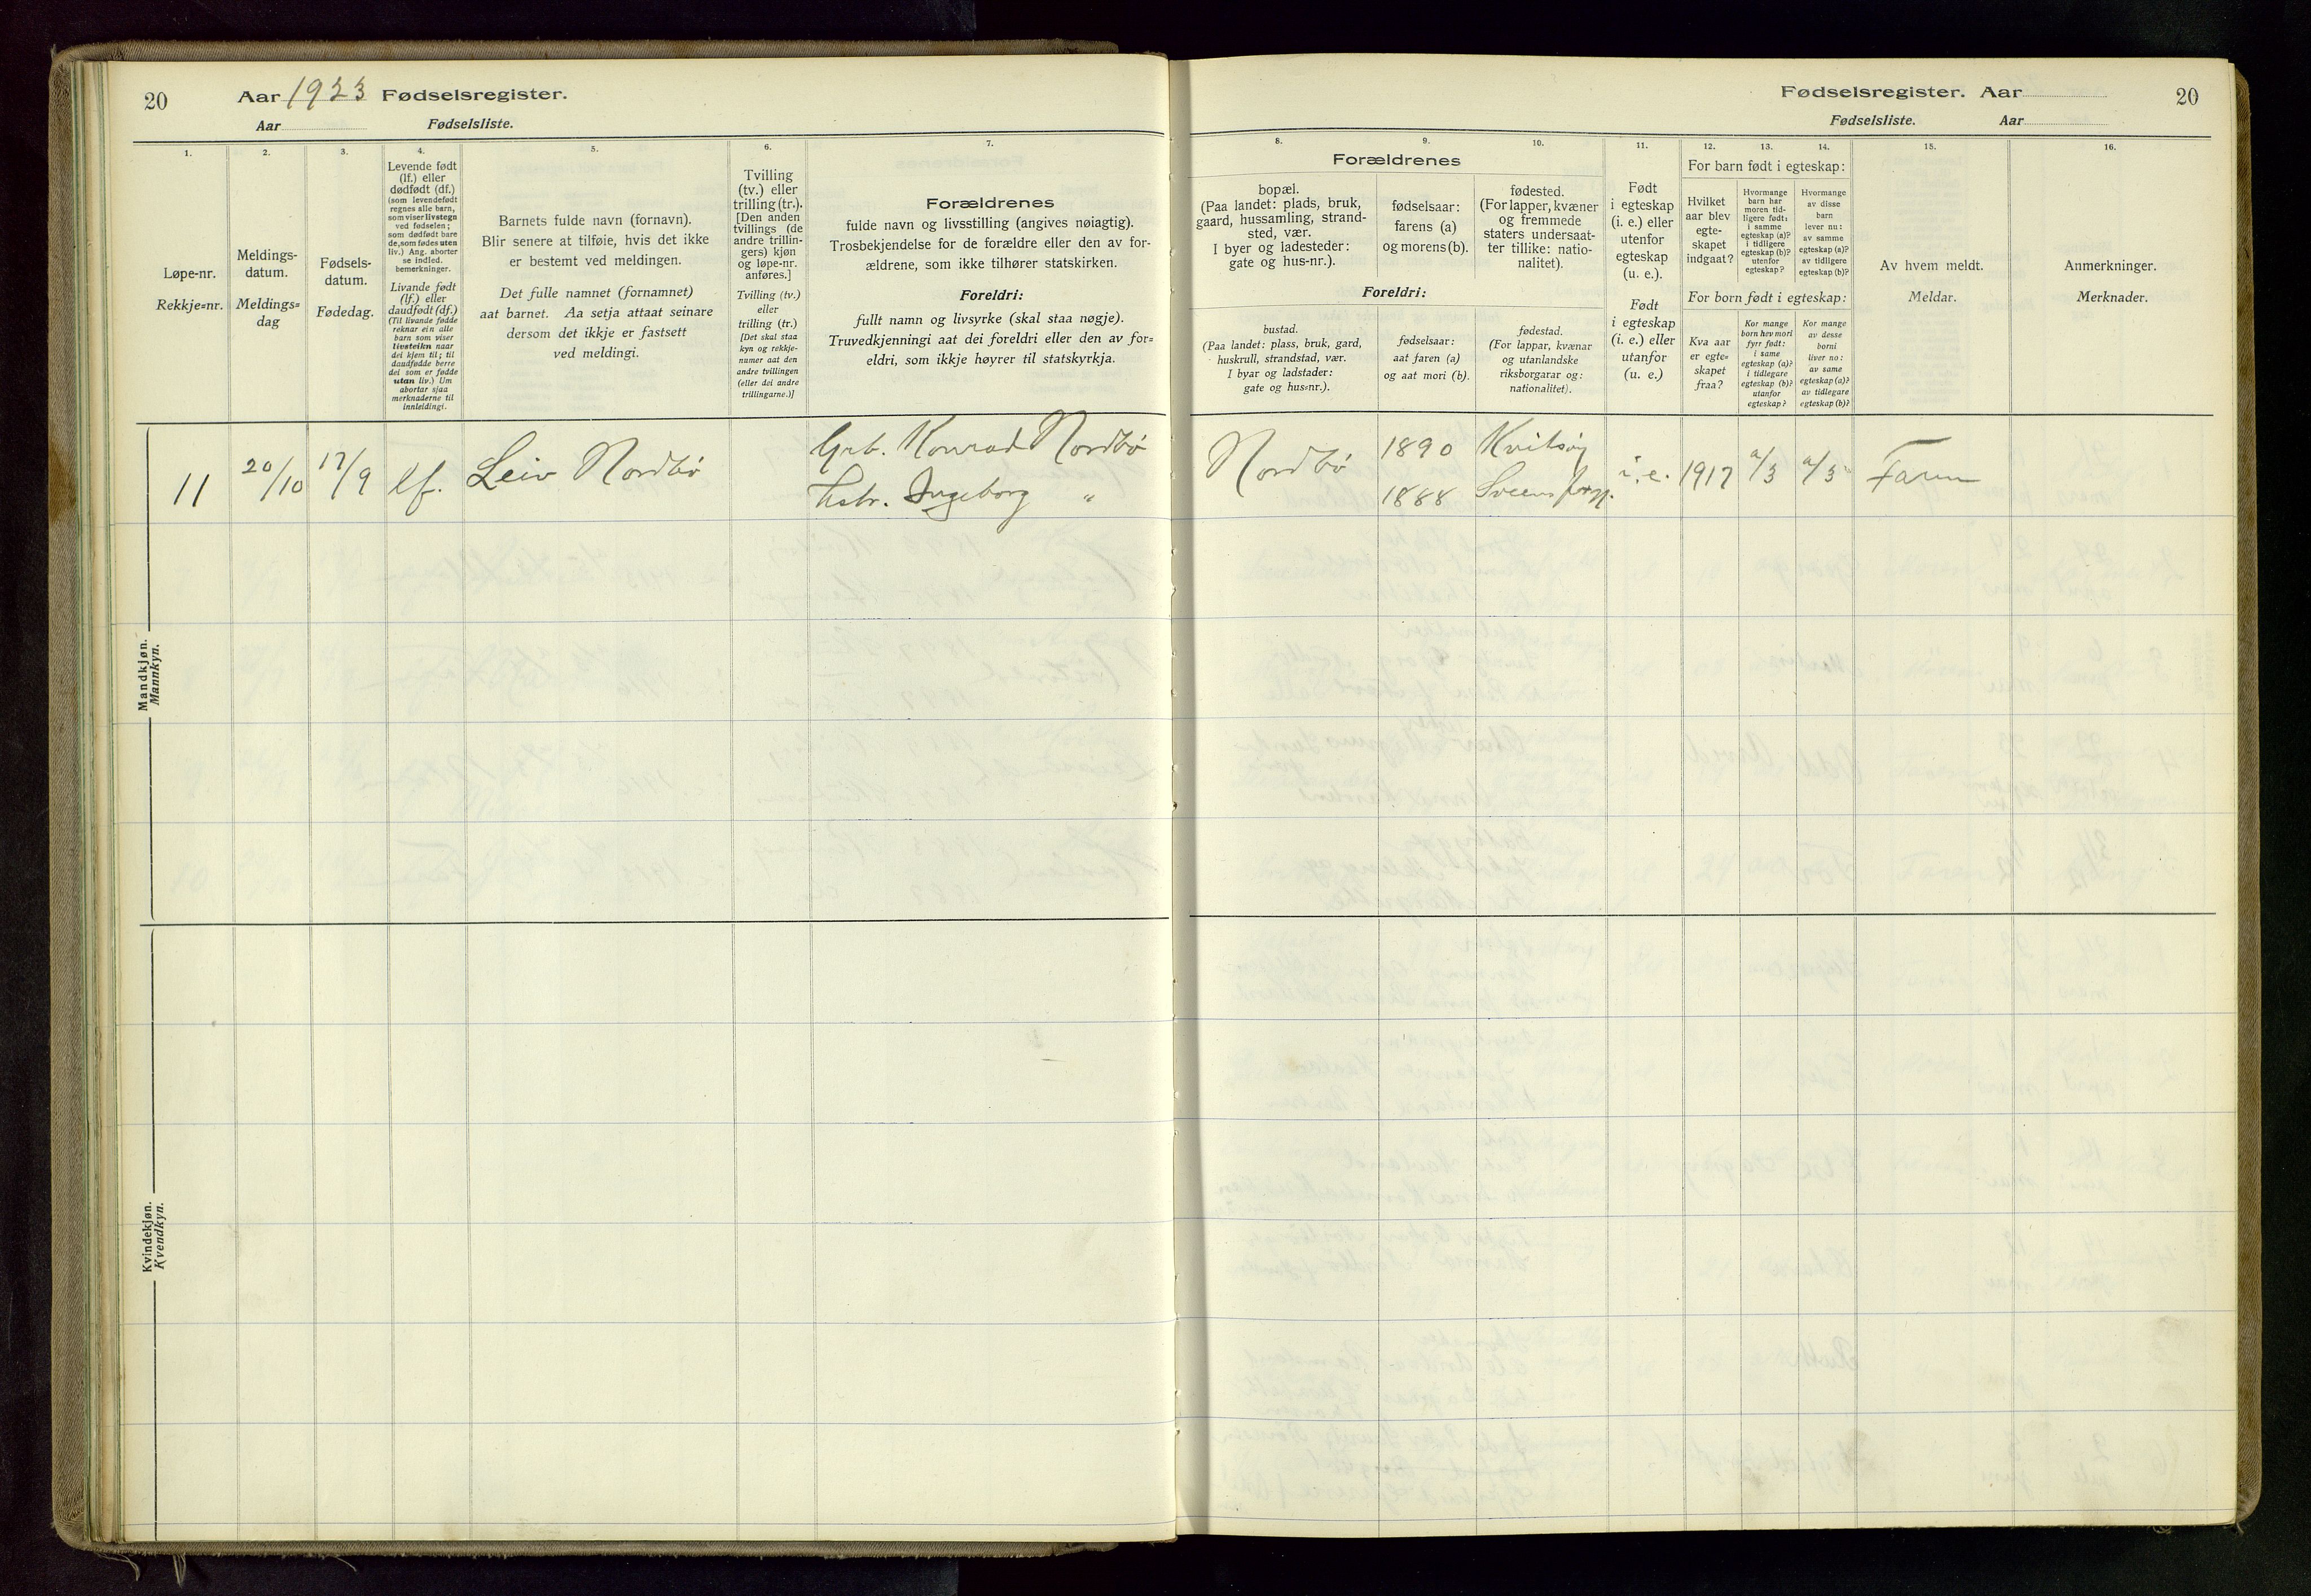 20
Aar 1923 Fødselsregister.
Aar Fødselsliste.
1.
Løpe-nr.
Rekkje=nr.
2.
Meldings-
datum.
Meldings=
dag
3.
Fødsels-
datum.
Fødedag.
4.
Levende født
(lf.) eller
dødfødt (df.)
(som levendefødt
regnes alle barn,
som viser livstegn
ved fødselen;
som dødfødt bare
de, som fødes uten
liv.) Ang. aborter
se indled.
bemerkninger.
Livande født
(lf.) eller
daudfødt (df.)
(Til livande fødde
reknar ein alle
barn som viser
livsteikn naar
dei kjem til; til
daudfødde berre
dei som er fødde
utan liv.) Um
abortar sjaa
merknaderne til
innleidingi.
5.
Barnets fulde navn (fornavn).
Blir senere at tilføie, hvis det ikke
er bestemt ved meldingen.
Det fulle namnet (fornamnet)
aat barnet. Aa setja attaat seinare
dersom det ikkje er fastsett
ved meldingi.
6.
Tvilling
(tv.) eller
trilling (tr.).
[Den anden
tvillings (de
andre trillin-
gers) kjøn
og løpe-nr.
anføres.]
Tvilling (tv.)
eller
trilling (tr.)
[Det skal staa
kyn og rekkje-
numer aat den
andre tvillingen
(eller dei andre
trillingarne.)]
7.
Forældrenes
fulde navn og livsstilling (angives nøiagtig).
Trosbekjendelse for de forældre eller den av for-
ældrene, som ikke tilhører statskirken.
Foreldri:
fullt namn og livsyrke (skal staa nøgje).
Truvedkjenningi aat dei foreldri eller den av for=
eldri, som ikkje høyrer til statskyrkja.
Fødselsregister. Aar
20
Fødselsliste. Aar
Forældrenes
8.
bopæl.
(Paa landet: plads, bruk,
gaard, hussamling, strand-
sted, vær.
I byer og ladesteder:
gate og hus-nr.).
9.
fødselsaar:
farens (a)
og morens (b).
10.
fødested.
(For lapper, kvæner
og fremmede
staters undersaat-
ter tillike: natio-
nalitet).
Foreldri:
bustad.
(Paa landet: plass, bruk, gard,
huskrull, strandstad, vær.
I byar og ladstader:
gate og hus=nr.).
fødselsaar:
aat faren (a)
og aat mori (b).
fødestad.
(For lappar, kvænar
og utanlandske
riksborgarar og:
nationalitet).
11.
Født
i egteskap
(i. e.) eller
utenfor
egteskap
(u. e.).
Født
i egteskap
(i. e.) eller
utanfor
(u. e.)
For barn født i egteskap:
12.
Hvilket
aar blev
egte-
skapet
indgaat?
13.
Hvormange
barn har
moren tid-
ligere født:
i samme
egteskap (a)?
i tidligere
egteskap (b)?
utenfor
egteskap?
14.
Hvormange
av disse
barn
lever nu:
av samme
egteskap (a)?
av tidligere
egteskap (b)?
For born født i egteskap:
Kva aar
er egte=
skapet
fraa?
Kor mange
born hev mori
fyrr født:
i same
egteskap (a)?
i tidlegare
egteskap (b)?
utanfor
egteskap?
Kor mange
av desse
borni
liver no:
av same
egteskap (a)?
av tidlegare
egteskap (b)?
15.
Av hvem meldt.
Meldar.
16.
Anmerkninger.
Merknader.
Mandkjøn.
Mannkyn.
11 20/10 17/9 lf. Leiv Nordbø Grb. Konrad Nordbø
Hstr. Ingeborg "
Nordbø 1890 Kvitsøy i.e. 1917 a/3 a/3 Faren
1888
Kvindekjøn.
Kvendkyn.